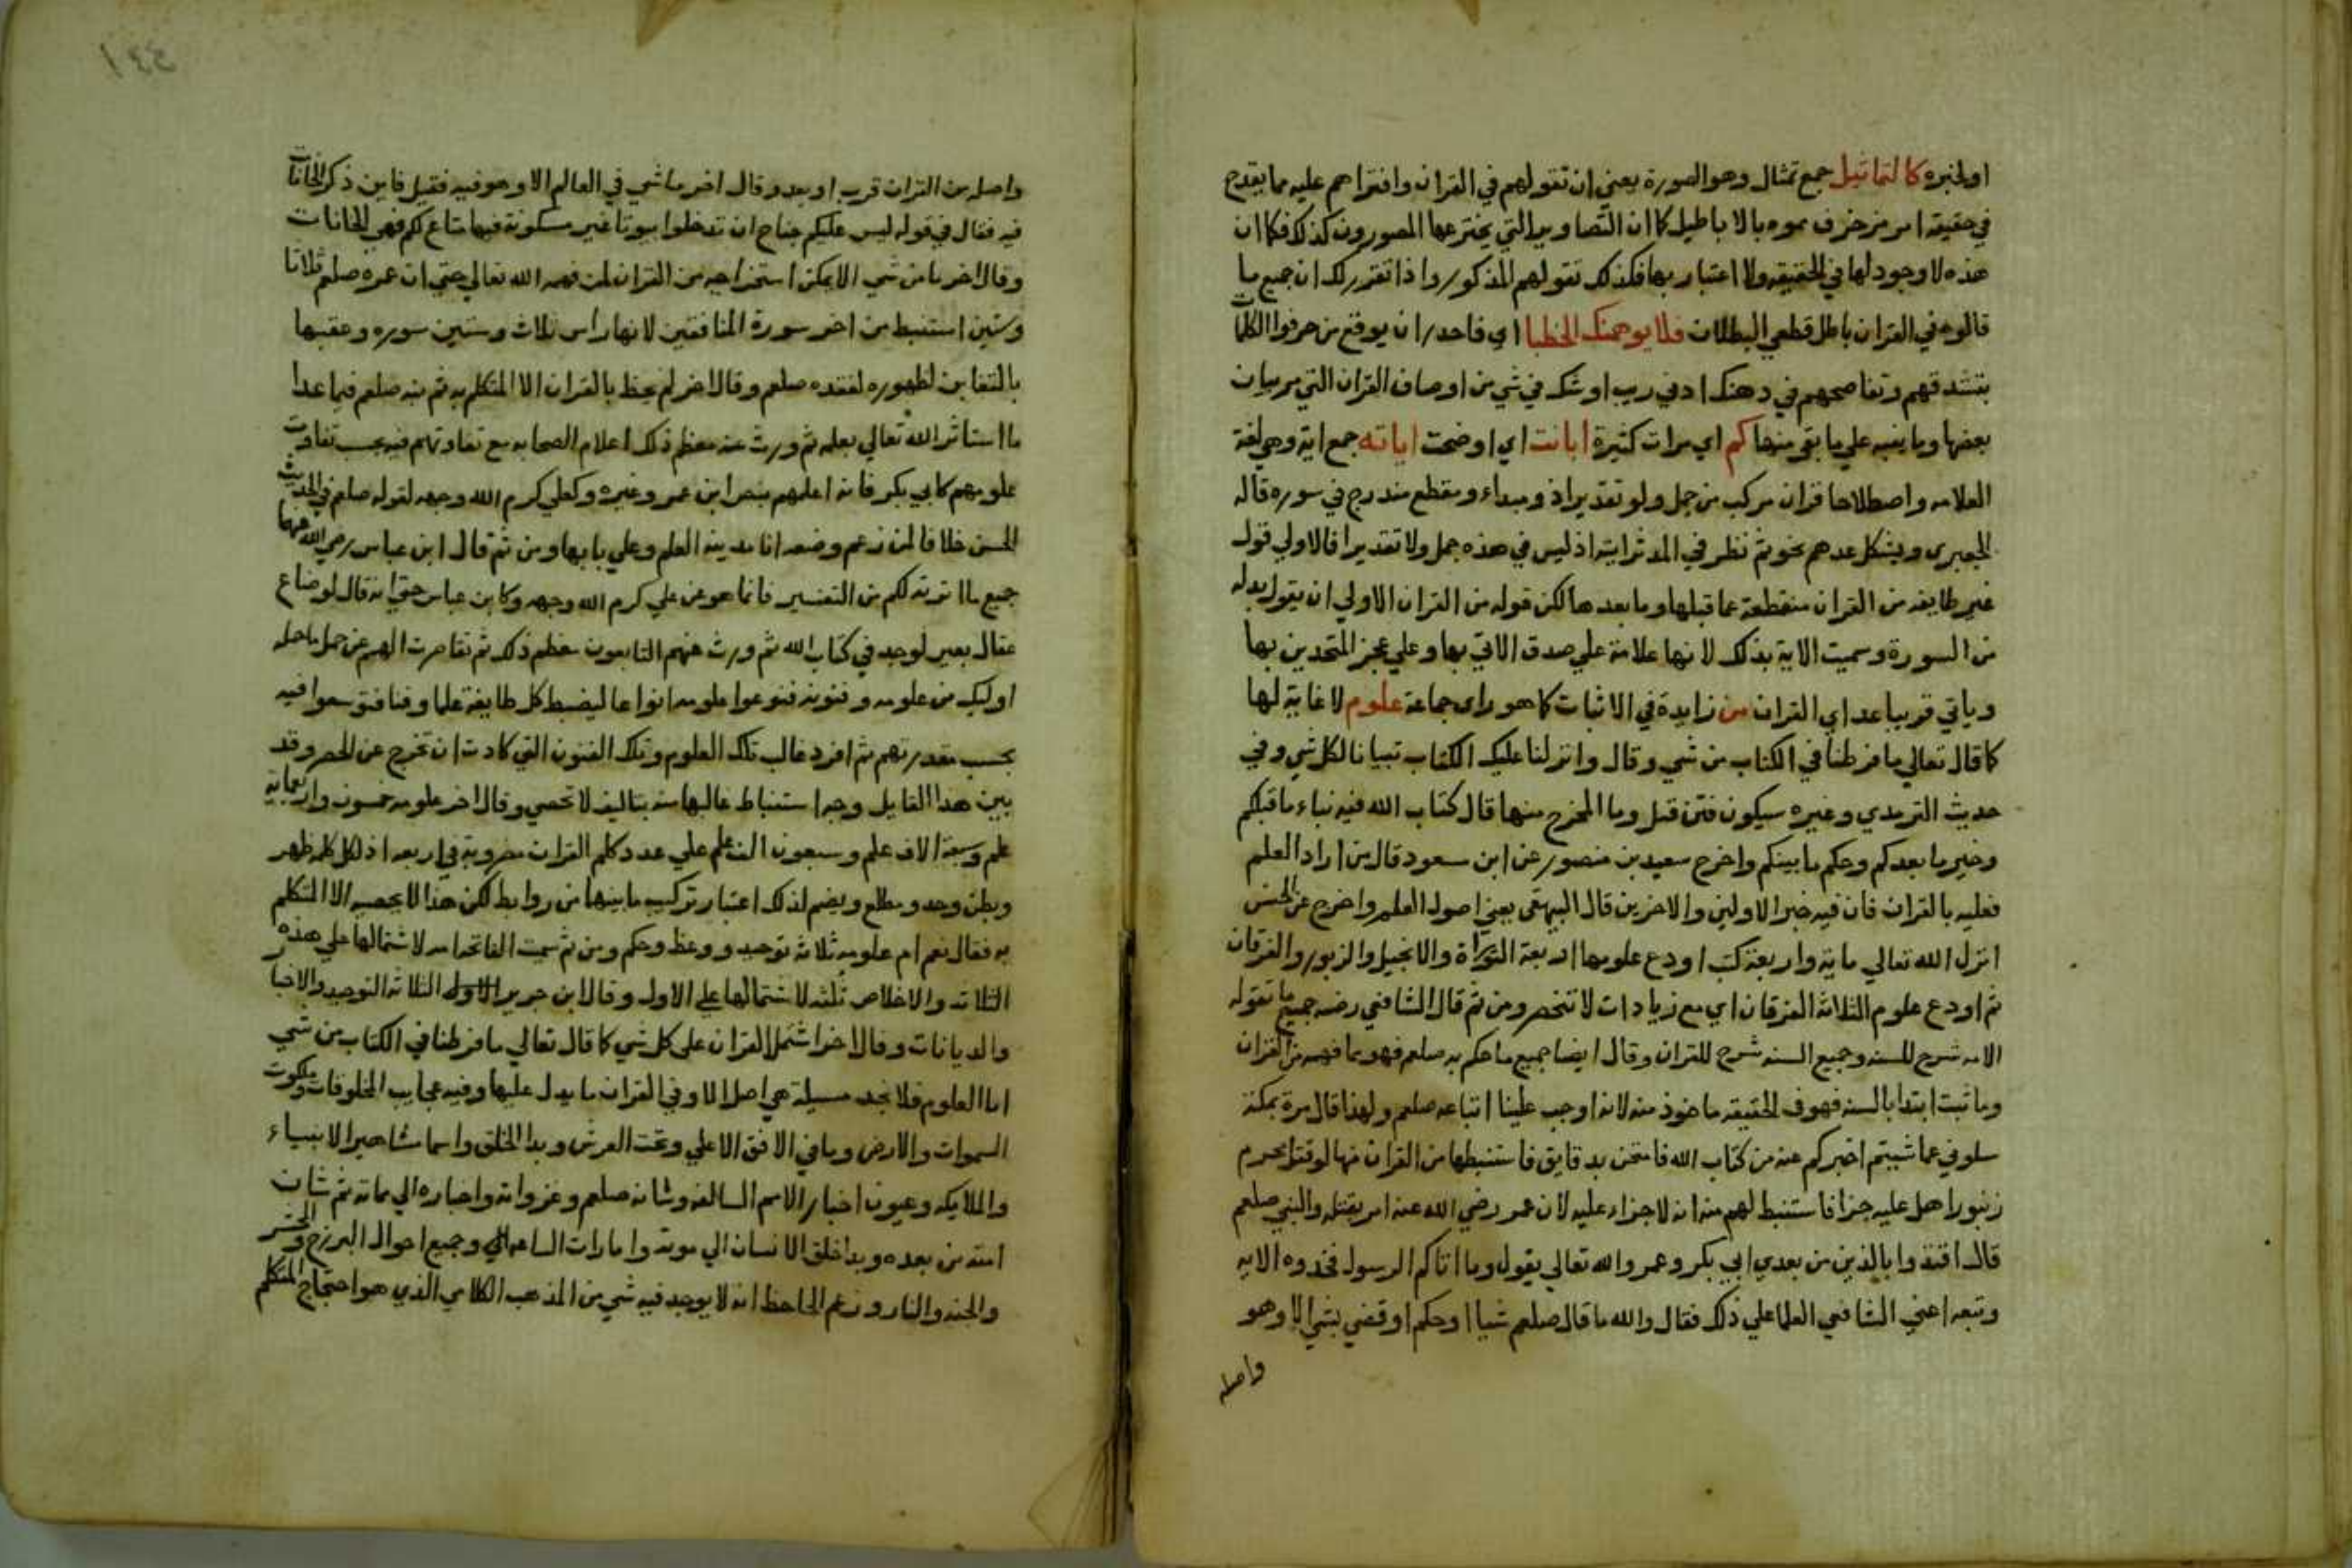 اولخبره كالتماثيل جمع تمثال وهو الصورة يعني ان تقولهم في القران وافتراهم عليه مما يقدح
في حقيقة امر مزخرف مموه بالاباطيل كما ان التصاوير التي يخترعها المصورون كذلك فكما ان
هذه لا وجود لها في الحقيقه ولا اعتبار بها فكذلك تقولهم المذكور واذا تقرر لك ان جميع ما
قالوه في القران باطل قطعي البطلان فلا يوهمنك الخطبا اي فاحذر ان يوقع من حرفوا الكلمات
بتشدقهم وتفاصحهم في دهنك ادني ريب او شك في شي من اوصاف القران التي مر بيان
بعضها وما ينبه علي ما بقي منها كم اي مرات كثيرة ابانت اي اوضحت اياته جمع اية وهي لغة
العلامه واصطلاحا قران مركب من جمل ولو تقديرا ذو مبداء ومقطع مندرج في سوره قاله
الجعبري ويشكل عدهم نحو ثم نظر في المدثر اية اذ ليس في هذه جمل ولا تقديرا فالاولي قول
غيره طايفه من القران منقطعة عما قبلها وما بعدها لكن قوله من القران الاولي ان يقول بدله
من السورة وسميت الاية بذلك لانها علامة علي صدق الاتي بها وعلي عجز المتحدين بها
وياتي قريبا عد اي القران من زايدة في الاثبات كما هو راى جماعة علوم لا غاية لها
كما قال تعالي ما فرطنا في الكتاب من شي وقال وانزلنا عليك الكتاب تبيانا لكل شي وفي
حديث الترمدي وغيره سيكون فتن قيل وما المخرج منها قال كتاب الله فيه نباء ما قبلكم
وخبر ما بعدكم وحكم ما بينكم واخرج سعيد بن منصور عن ابن سعود قال من اراد العلم
فعليه بالقران فان فيه خبر الاولين والاخرين قال البيهقى يعني اصول العلم واخرج عن الحسن
انزل الله تعالي ماية واربعة كتب اودع علومها اربعة التوراة والانجيل والزبور والفرقان
ثم اودع علوم الثلاثة الفرقان اي مع زيادات لا تنحصر ومن ثم قال الشافعي رضه جميع ما تقوله
الامه شرح للسنه وجميع السنه شرح للقران وقال ايضا جميع ما حكم به صلعم فهو مما فهمه من القران
وما ثبت ابتدا بالسنه فهو في الحقيقه ماخوذ منه لانه اوجب علينا اتباعه صلعم ولهذا قال مرة بمكة
سلوني عما شيتم اخبركم عنه من كتاب الله فامتحن بدقايق فاستنبطها من القران منها لو قتل محرم
زنبورا هل عليه جزا فاستنبط لهم منه انه لا جزاء عليه لان عمر رضي الله عنه امر بقتله والنبي صلعم
قال اقتدوا بالذين من بعدي ابي بكر وعمر والله تعالي يقول وما اتاكم الرسول فخدوه الايه
وتبعه اعني الشافعي العلما علي ذلك فقال والله ما قال صلعم شيا او حكم او قضي بشي الا وهو
واصله
١٤٤
واصله من القران قرب او بعد وقال اخر ما شي في العالم الا وهو فيه فقيل فاين ذكر الخانات
فيه فقال في قوله ليس عليكم جناح ان تدخلوا بيوتا غير مسكونة فيها متاع لكم فهي الخانات
وقال اخر ما من شي الا يمكن استخراجه من القران لمن فهمه الله تعالي حتي ان عمره صلعم ثلاثا
وستين استنبط من اخر سورة المنافقين لانها راس ثلاث وستين سوره وعقبها
بالتغابن لظهوره لفقده صلعم وقال اخر لم يحط بالقران الا المتكلم به ثم نبيه صلعم فيما عدا
ما استاثر الله تعالي بعلمه ثم ورث عنه معظم ذلك اعلام الصحابه مع تفاوتهم فيه بحسب تفاوت
علومهم كابي بكر فانه اعلمهم بنص ابن عمر وغيره وكعلي كرم الله وجهه لقوله صلعم في الحديث
الحسن خلافا لمن زعم وضعه انا مدينة العلم وعلي بابها ومن ثم قال ابن عباس رضي الله عنهما
جميع ما ابرزته لكم من التفسير فانما هو عن علي كرم الله وجهه وكابن عباس حتي انه قال لو ضاع
عقال بعير لوجد في كتاب الله ثم ورث عنهم التابعون معظم ذلك ثم تقاصرت الهمم عن حمل ما حمله
اوليك من علومه وفنونه فنوعوا علومه انواعا ليضبط كل طايفة علما وفنا فتوسعوا فيه
بحسب مقدرتهم ثم افرد غالب تلك العلوم وتلك الفنون التي كادت ان تخرج عن الحصر وقد
بين هدا القايل وجه استنباط غالبها منه بتاليف لا تحصي وقال اخر علومه خمسون واربعماية
علم وسبعة الاف علم وسبعون الف علم علي عدد كلم القران مضروبة في اربعه اذ لكل كلمه ظهر
وبطن وحد ومطلع ويضم لذلك اعتبار تركيب ما بينها من روابط لكن هذا لا يحصيه الا المتكلم
به فقال نعم ام علومه ثلاثة توحيد ووعظ وحكم ومن ثم سميت الفاتحه امه لاشتمالها علي هذه
الثلاثه والاخلاص ثلثه لاشتمالها علي الاول وقال ابن جرير الاول الثلاثه التوحيد والاخبار
والديانات وقال اخر اشتمل القران على كل شي كما قال تعالي ما فرطنا في الكتاب من شي
اما العلوم فلا نجد مسيلة هي اصل الا وفي القران ما يدل عليها وفيه عجايب المخلوقات وملكوت
السموات والارض وما في الافق الاعلي وتحت العرش وبدا الخلق واسما مشاهير الانبياء
والملايكه وعيون اخبار الامم السالفه وشانه صلعم وغزواته واخباره الي مماته ثم شان
امته من بعده وبدا خلق الانسان الي موته وامارات الساعه وجميع احوال البرزخ والحشر
والجنه والنار وزعم الجاحظ انه لا يوجد فيه شي من المذهب الكلامي الذي هو احتجاج المتكلم